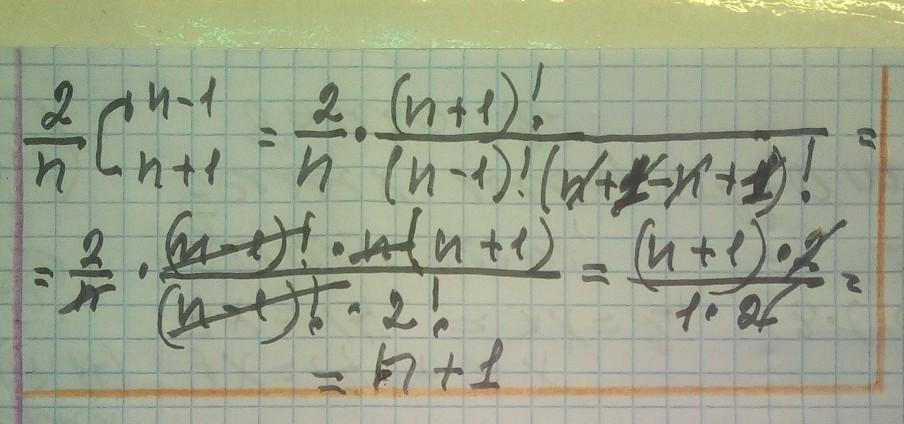 2/n C n-1 n+1 = 2/n · (n+1)! / (n-1)!(n+1-n+1)! =
= 2/n · (n-1)! · n(n+1) / (n-1)! · 2! = (n+1) · 2 / 1 · 2 =
= n+1